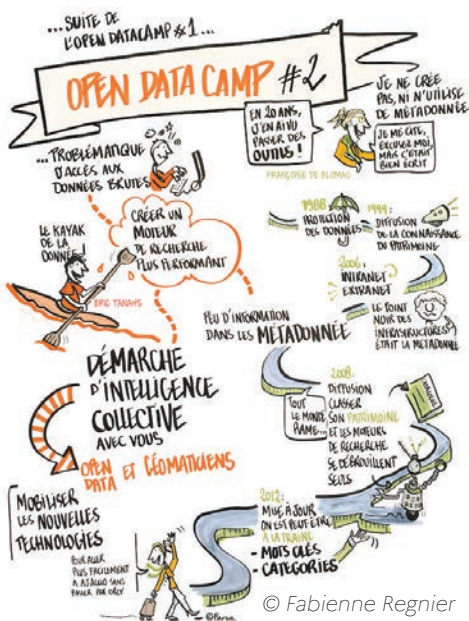 ...SUITE DE
L'OPEN DATACAMP #1...
OPEN DATA CAMP #2
JE NE CRÉE
PAS, NI N'UTILISE
DE MÉTADONNÉE
EN 20 ANS,
J'EN AI VU
PASSER DES
OUTILS !
JE ME CITE,
EXCUSEZ MOI,
MAIS C'ÉTAIT
BIEN ÉCRIT
FRANÇOISE DE BLOMAC
...PROBLÉMATIQUE
D'ACCÈS AUX
DONNÉES BRUTES
CRÉER UN
MOTEUR
DE RECHERCHE
PLUS PERFORMANT
LE KAYAK
DE LA
DONNÉE !
ERIC TANAYS
1988
PROTECTION
DES DONNÉES
1999:
DIFFUSION
DE LA CONNAISSANCE
DU PATRIMOINE
2006:
INTRANET
EXTRANET
LE POINT
NOIR DES
INFRASTRUCTURES
ÉTAIT LA METADONNÉE
PEU D'INFORMATION
DANS LES MÉTADONNÉE
DÉMARCHE
D'INTELLIGENCE
COLLECTIVE
AVEC VOUS
OPEN
DATA ET GÉOMATICIENS
2008:
DIFFUSION
CLASSER
SON PATRIMOINE
ET LES MOTEURS
DE RECHERCHE
SE DÉBROUILLENT
SEULS
TOUT
LE MONDE
RAME...
MOBILISER
LES NOUVELLES
TECHNOLOGIES
POUR ALLER
PLUS FACILEMENT
À AJACCIO SANS
PASSER PAR ORLY
2012:
MISE À JOUR
ON EST PEUT ÊTRE
À LA TRAÎNE
- MOTS CLÉS
- CATÉGORIES
© Fabienne Regnier